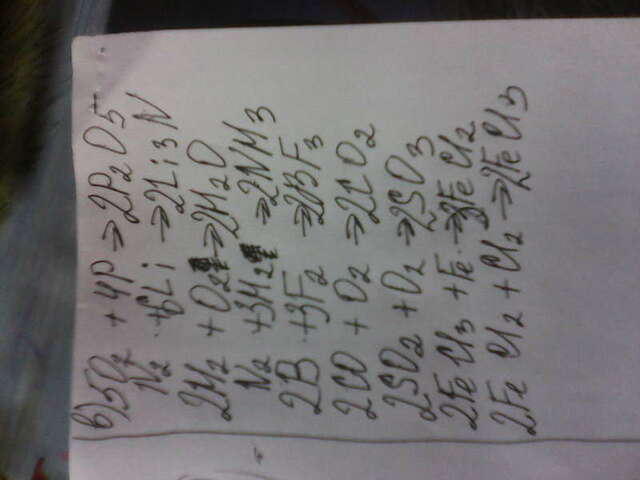 б) 5O2 + 4P → 2P2O5
N2 + 6Li → 2Li3N
2H2 + O2 → 2H2O
N2 + 3H2 → 2NH3
2B + 3F2 → 2BF3
2CO + O2 → 2CO2
2SO2 + O2 → 2SO3
2FeCl3 + Fe → 3FeCl2
2FeCl2 + Cl2 → 2FeCl3